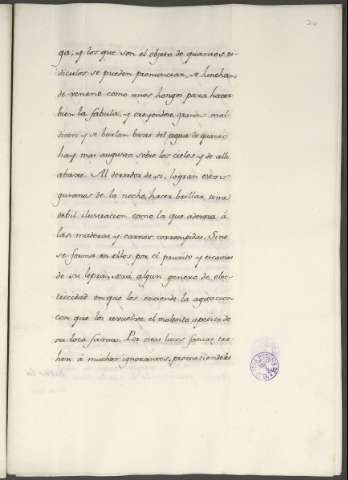 ga, y los que son el objeto de quantos ri-
diculos se pueden pronunciar, se hinchan
de veneno como unos hongos para hacer
bien la fabula, y creyendose grandes mal-
dicen y se burlan de quanto
hay mas augusto sobre los cielos y de alli
abaxo. Al derredor de si, logran estos
gusanos de la noche, hacer brillar, una
debil ilustracion como la que adorna á
las maderas y carnes corrompidas. Sino
se forma en ellos por el prurito y escamas
de su lepra, sera algun genero de elec-
tricidad en que los enciende la agitacion
con que los revuelve el molesto aperito de
su loca fama. Por otras luces fatuas
á muchos ignorantes, precipitandoles